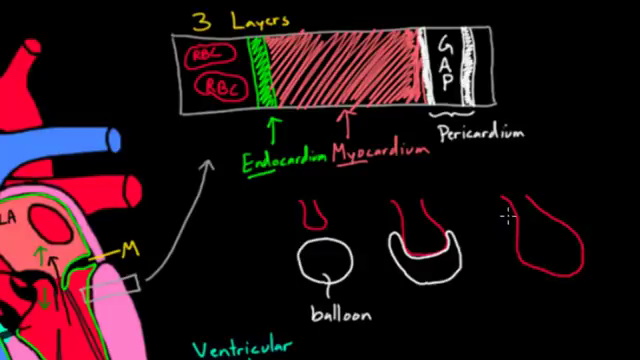 3 Layers
RBC
RBC
GAP
Pericardium
Endocardium
Myocardium
LA
M
balloon
Ventricular